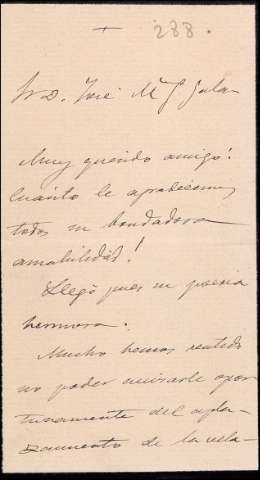 + 288.
Sr D. José Mª Galan
Muy querido amigo:
Cuánto le agradecemos
todos su bondadosa
amabilidad!
Llegó pues su poesía
hermosa.
Mucho hemos sentido
no poder avisarle opor
tunamente del apla-
zamiento de la vela-